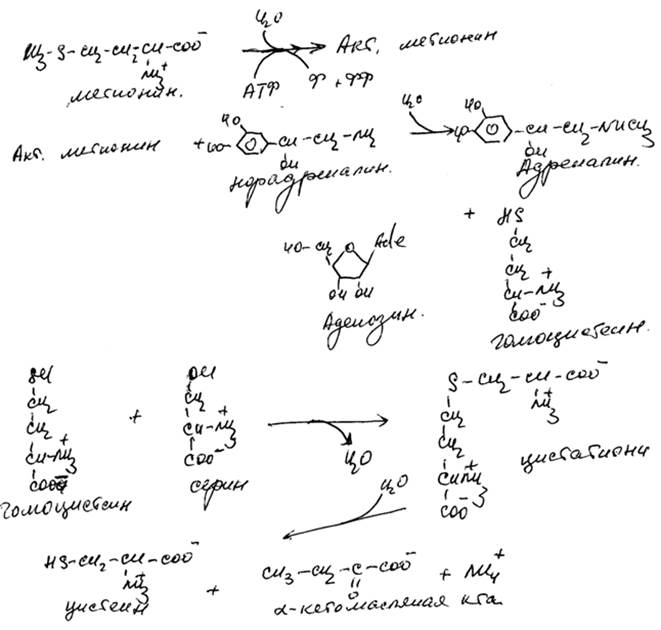 H2O
CH3-S-CH2-CH2-CH-COO-
NH3+
Акт. метионин
метионин.
АТФ
Ф + ФФ
Акт. метионин +
HO
HO-CH-CH2-NH2
OH
норадреналин.
H2O
HO
HO-CH-CH2-NHCH3
OH
Адреналин.
+
HO-CH2 O Ade
OH OH
Аденозин.
HS
CH2
CH2
CH-NH3+
COO-
гомоцистеин.
SH
CH2
CH2
CH-NH3+
COO-
гомоцистеин
+
OH
CH2
CH-NH3+
COO-
серин
H2O
S-CH2-CH-COO-
NH3+
CH2
CH2
CHNH3+
COO-
цистатиони
H2O
HS-CH2-CH-COO-
NH3+
цистеин
+
CH3-CH2-C-COO-
O
α-кетомасляная кта
+ NH4+